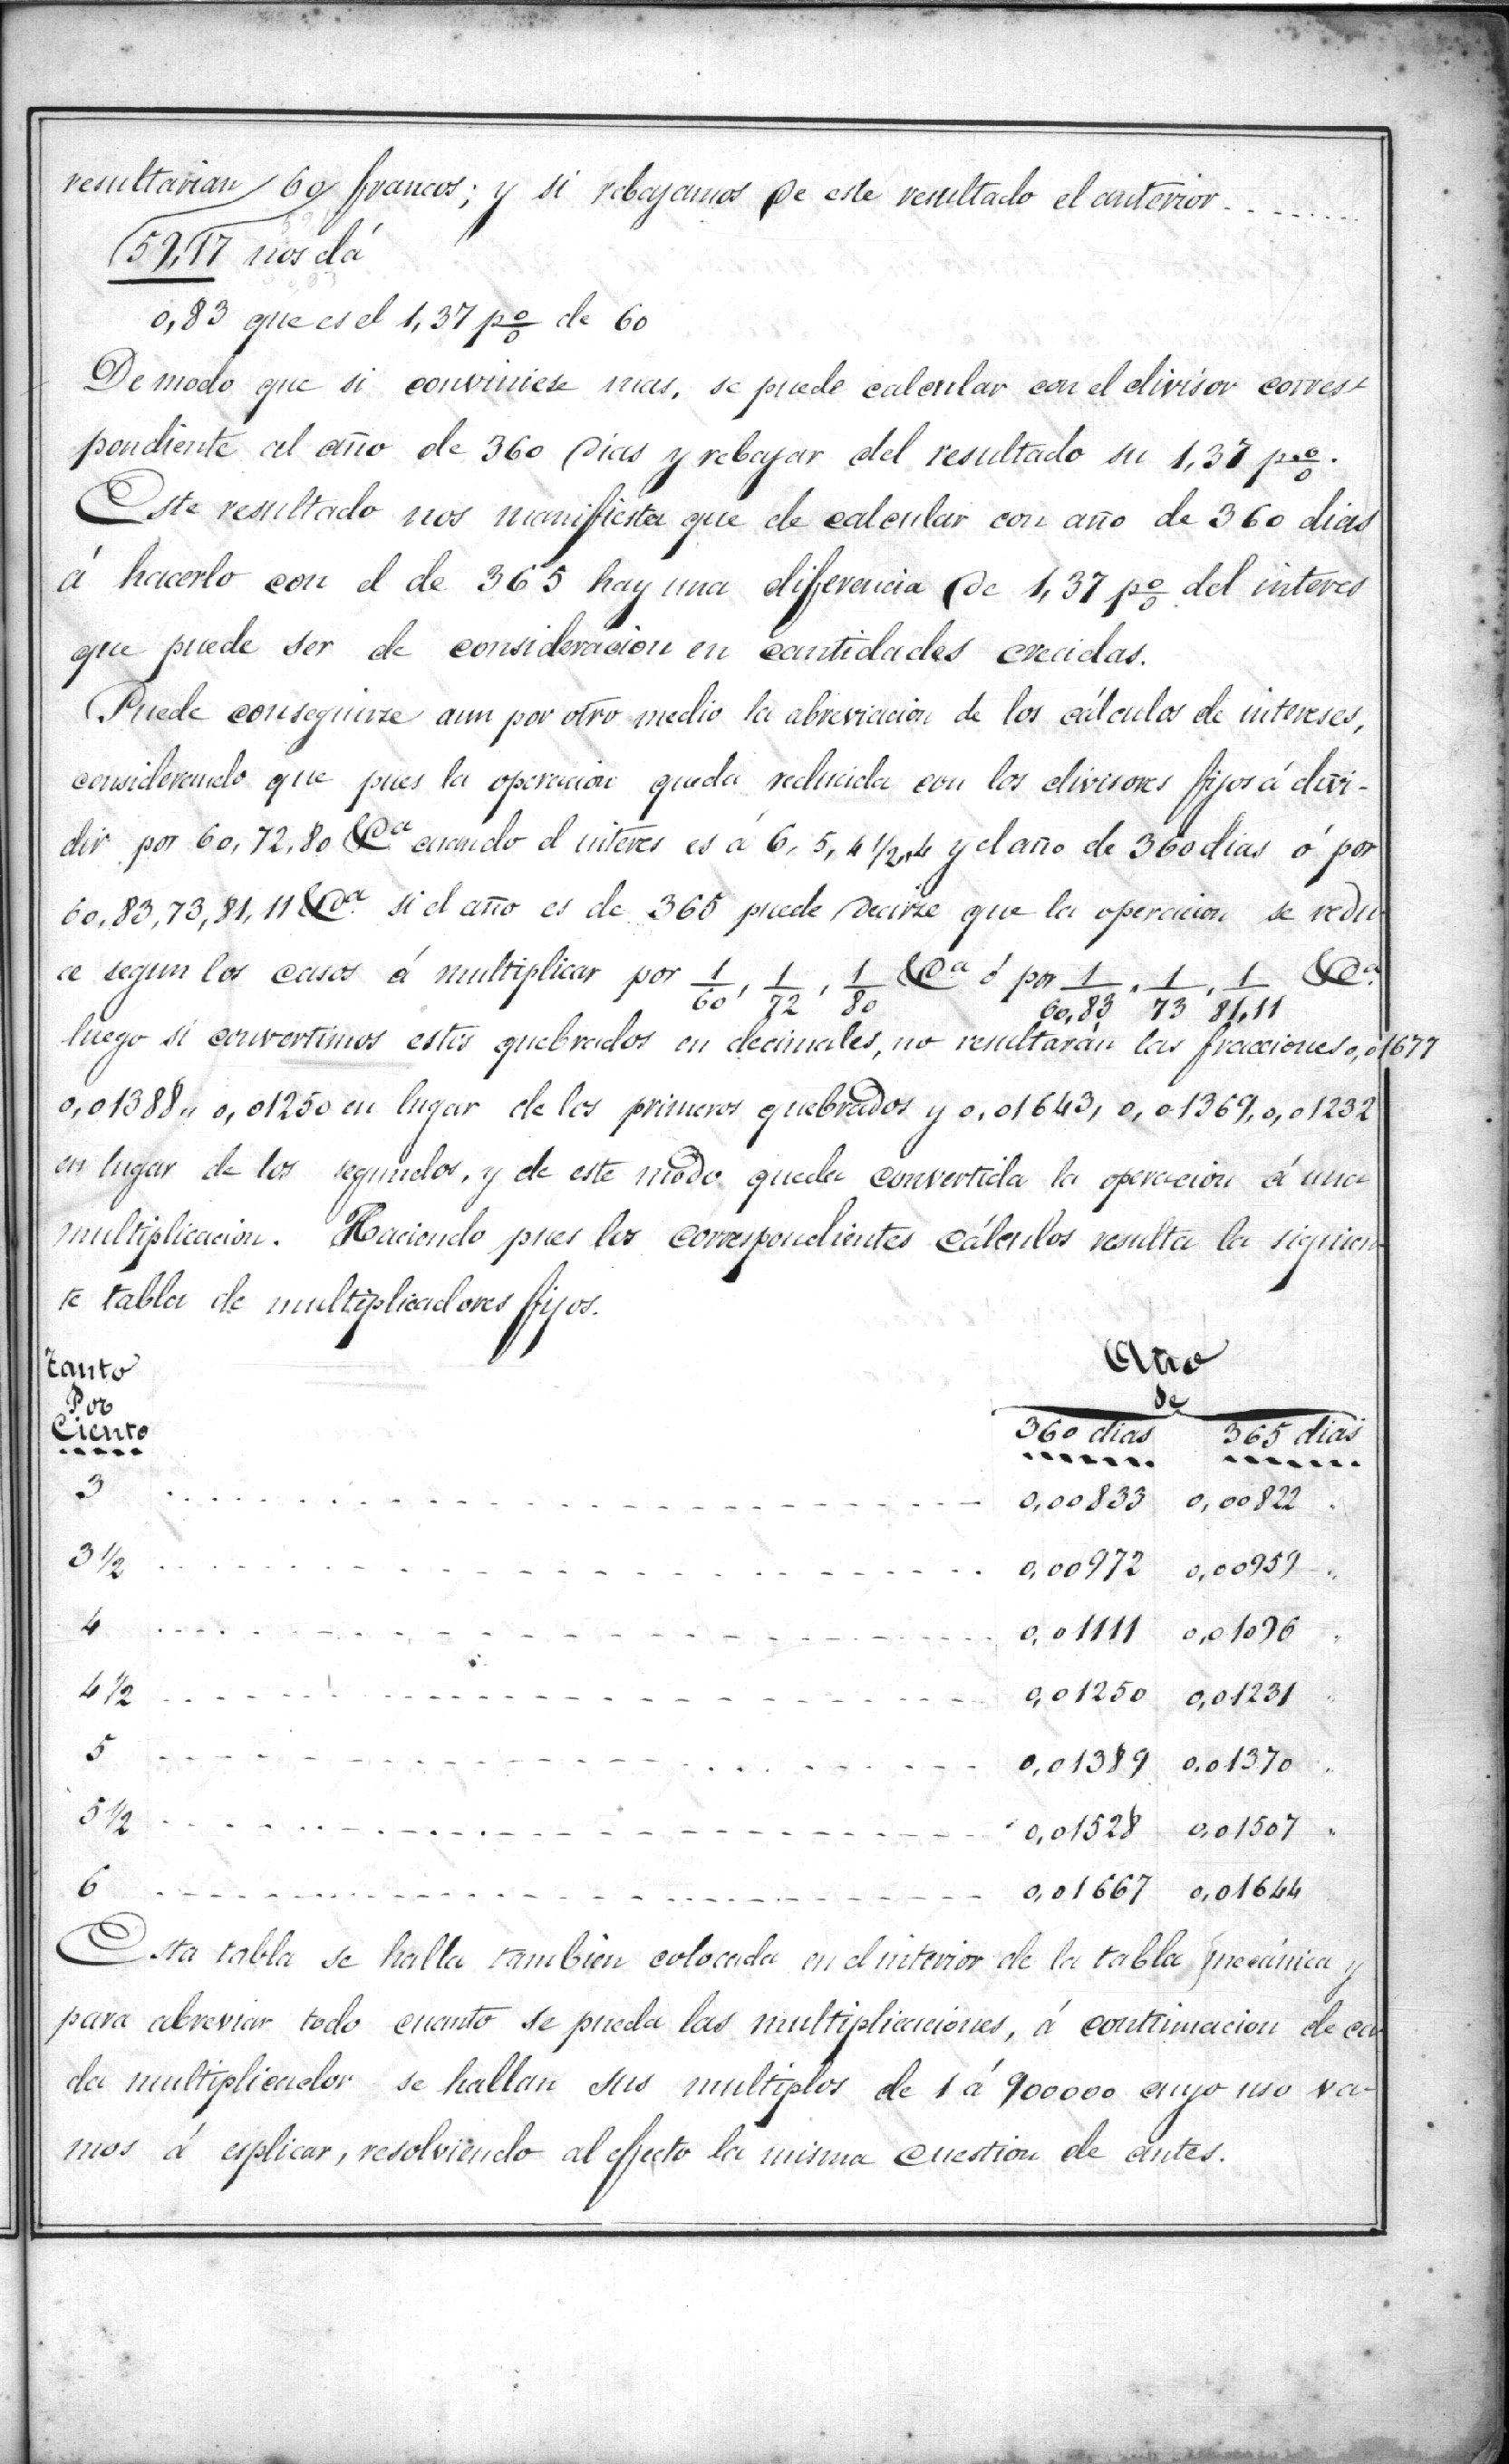 resultarian 60 francos; y si rebajamos de este resultado el anterior ........
59,17 nos dá
0,83 que es el 1,37 p% de 60
De modo que si conviniese mas, se puede calcular con el divisor corres-
pondiente al año de 360 dias y rebajar del resultado su 1,37 p%.
Este resultado nos manifiesta que de calcular con año de 360 dias
á hacerlo con el de 365 hay una diferencia de 1,37 p% del interes
que puede ser de consideracion en cantidades crecidas.
Puede conseguirse aun por otro medio la abreviacion de los cálculos de intereses,
considerando que pues la operacion queda reducida con los divisores fijos á divi-
dir por 60, 72, 80 &a cuando el interes es á 6, 5, 4 1/2, 4 y el año de 360 dias ó por
60,83, 73, 81,11 &a si el año es de 365 puede decirse que la operacion se redu
ce segun los casos á multiplicar por 1/60, 1/72, 1/80 &a ó por 1/60,83, 1/73, 1/81,11 &a
luego si convertimos estos quebrados en decimales, no resultarán las fracciones 0,01677
0,01388,, 0,01250 en lugar de los primeros quebrados y 0,01643, 0,01369, 0,01232
en lugar de los segundos, y de este modo queda convertida la operacion á una
multiplicacion. Haciendo pues los correspondientes cálculos resulta la siguien
te tabla de multiplicadores fijos.
Tanto
Por
Ciento
Año
de
360 dias 365 dias
3 ........ 0,00833 0,00822 "
3 1/2 ........ 0,00972 0,00959 "
4 ........ 0,01111 0,01096 "
4 1/2 ........ 0,01250 0,01231 "
5 ........ 0,01389 0,01370 "
5 1/2 ........ 0,01528 0,01507 "
6 ........ 0,01667 0,01644
Esta tabla se halla tambien colocada en el interior de la tabla mecánica y
para abreviar todo cuanto se pueda las multiplicaciones, á continuacion de ca
da multiplicador se hallan sus multiplos de 1 á 900000 cuyo uso va-
mos á esplicar, resolviendo al efecto la misma cuestion de antes.